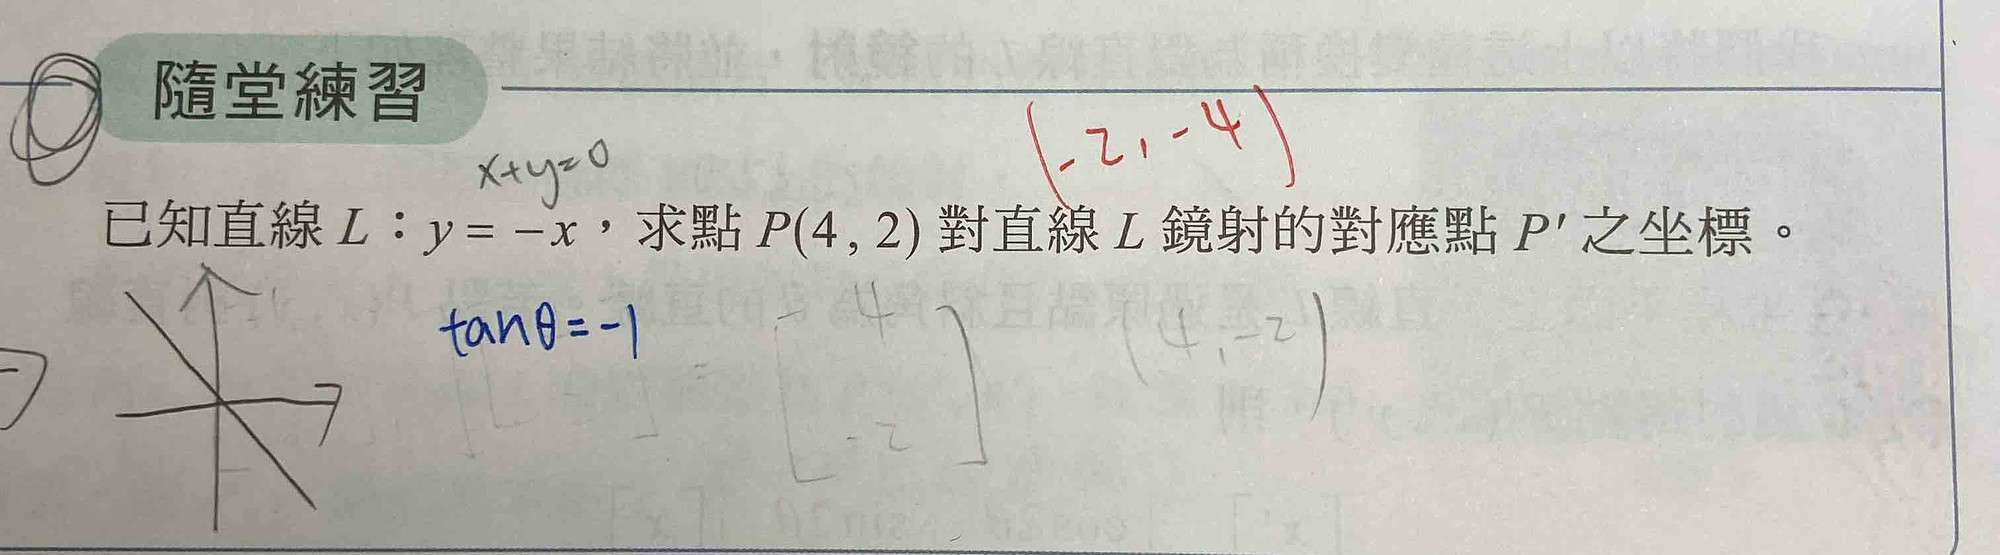 隨堂練習
(-2,-4)
x+y=0
已知直線 L：y = −x，求點 P(4, 2) 對直線 L 鏡射的對應點 P′ 之坐標。
tanθ=-1
= [4 -2]
(4,-2)